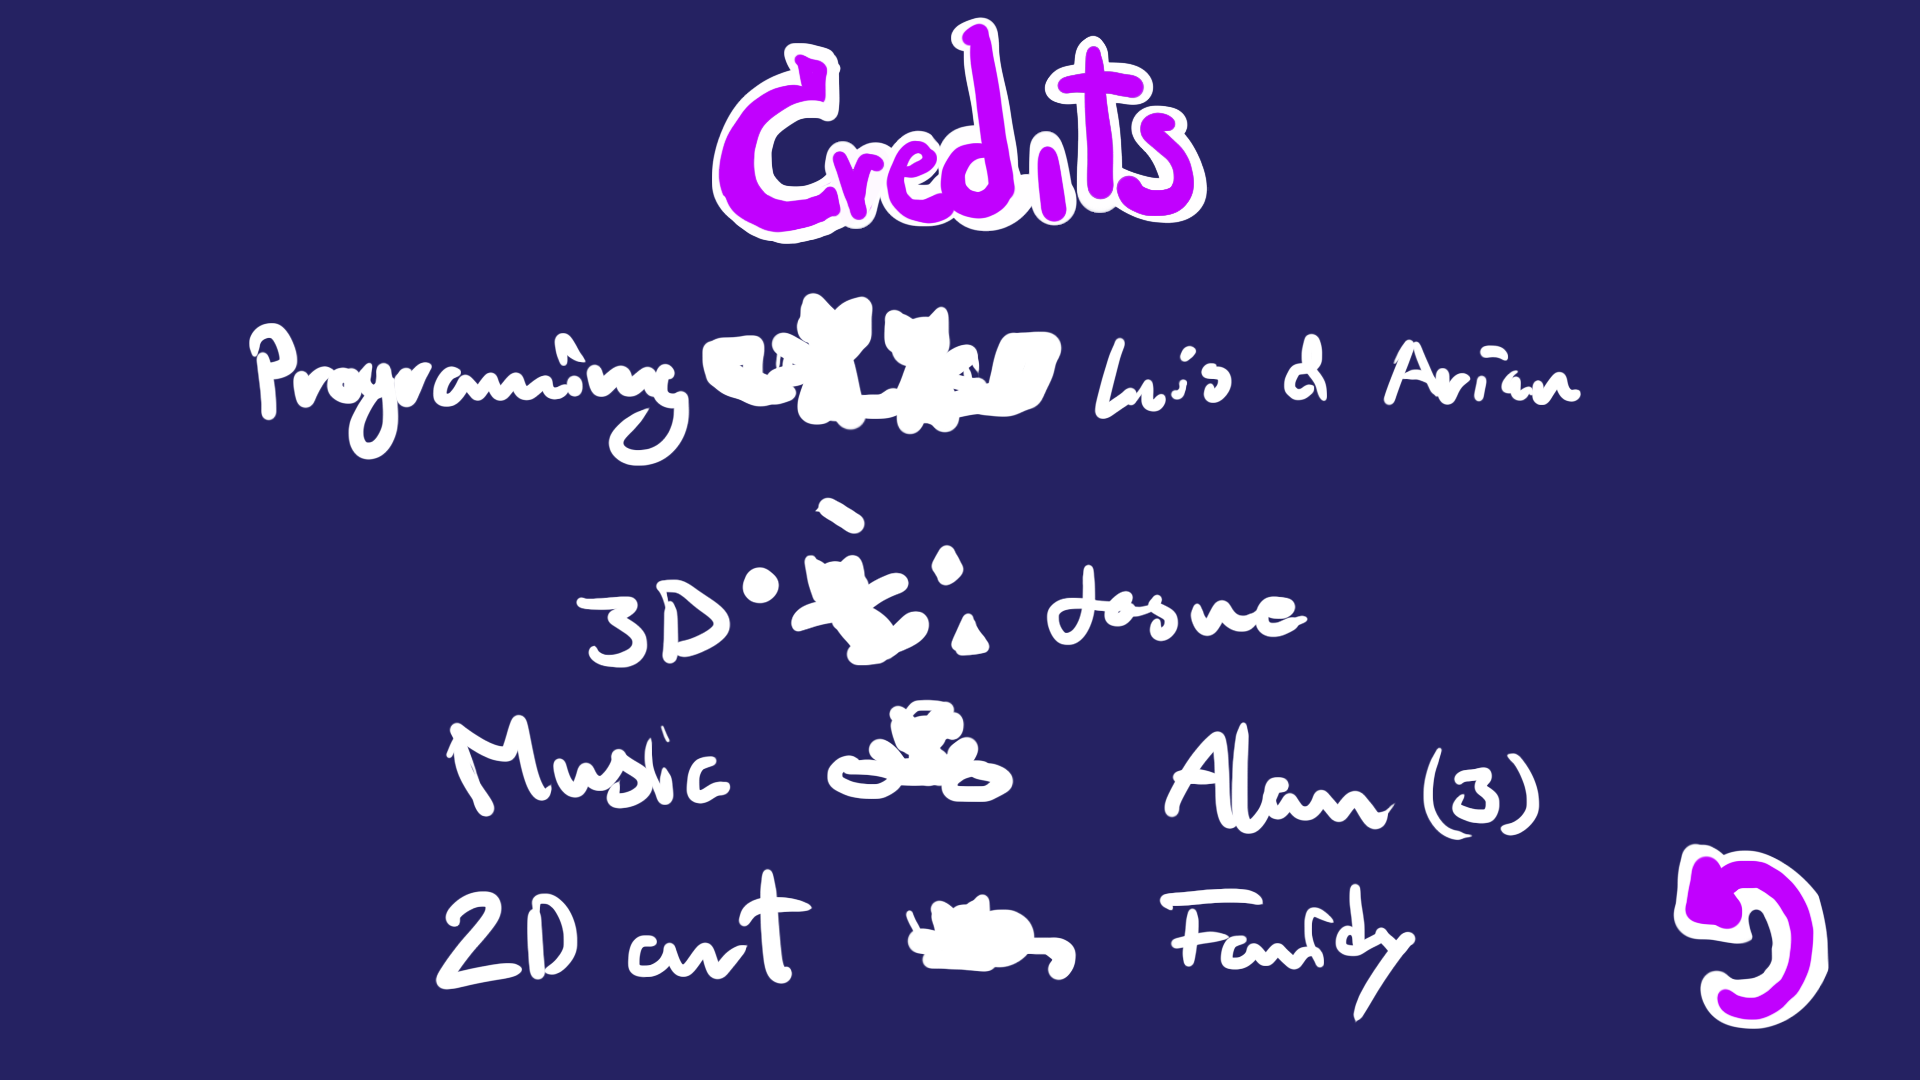 Credits
Programing Luis & Arian
3D Josue
Music Alan (3)
2D art Faridy